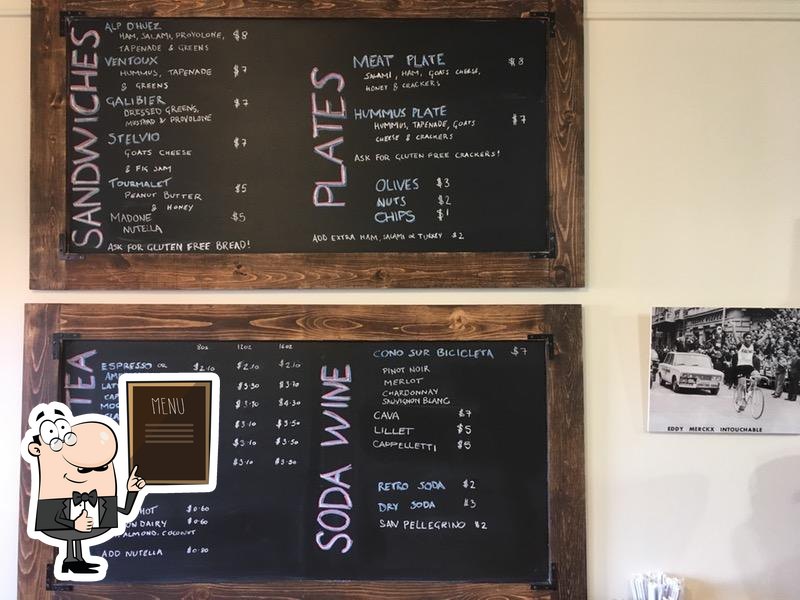 SANDWICHES
ALP D'HUEZ $8
HAM, SALAMI, PROVOLONE,
TAPENADE & GREENS
VENTOUX $7
HUMMUS, TAPENADE
& GREENS
GALIBIER $7
DRESSED GREENS,
MUSTARD & PROVOLONE
STELVIO $7
GOATS CHEESE
& FIG JAM
TOURMALET $5
PEANUT BUTTER
& HONEY
MADONE $5
NUTELLA
ASK FOR GLUTEN FREE BREAD!
PLATES
MEAT PLATE $8
SALAMI, HAM, GOATS CHEESE,
HONEY & CRACKERS
HUMMUS PLATE $7
HUMMUS, TAPENADE, GOATS
CHEESE & CRACKERS
ASK FOR GLUTEN FREE CRACKERS!
OLIVES $3
NUTS $2
CHIPS $1
ADD EXTRA HAM, SALAMI OR TURKEY $2
TEA
8oz 12oz 16oz
ESPRESSO OR $2.10 $2.10 $2.10
MENU
HOT $0.60
DAIRY $0.60
ALMOND, COCONUT
ADD NUTELLA
SODA WINE
CONO SUR BICICLETA $7
PINOT NOIR
MERLOT
CHARDONNAY
SAUVIGNON BLANC
CAVA $7
LILLET $5
CAPPELLETTI $5
RETRO SODA $2
DRY SODA $3
SAN PELLEGRINO $2
EDDY MERCKX INTOUCHABLE